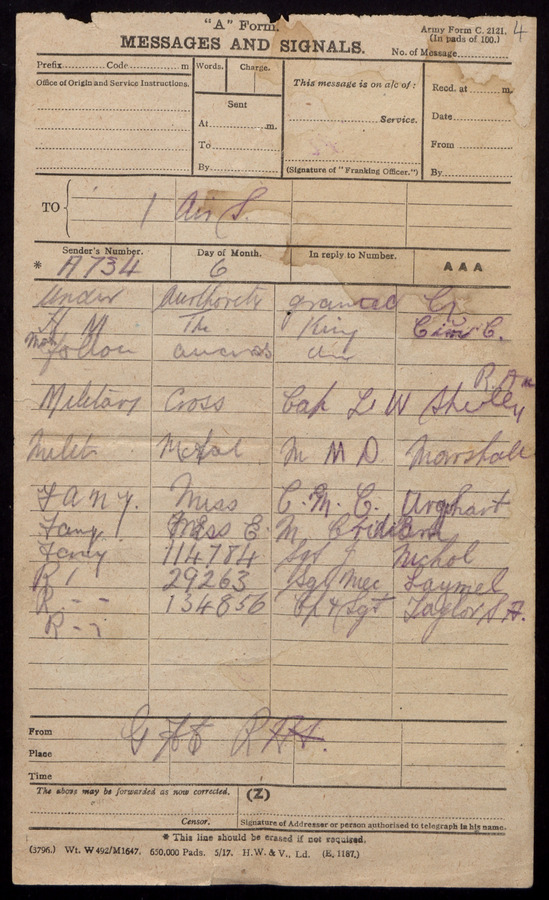 "A" Form.
Army Form C. 2121.
4
(In pads of 100.)
MESSAGES AND SIGNALS.
No. of Message
Prefix Code m
Words.
Charge.
This message is on a/c of :
Recd. at m.
Office of Origin and Service Instructions.
Sent
At m.
Service.
Date
To
From
By
(Signature of "Franking Officer.")
By
TO
1 Air S.
Sender's Number.
Day of Month.
In reply to Number.
AAA
* A734
6
Under Authority granted
H M The King C in C.
follow
Military Cross Cap L W Shelley
Milit Medal M M D Marshall
FANY. Miss C. M. C. Urquhart
Fany Miss E. M.
Fany 114784 Sgt J Nichol
R 29263 Sgt Mec
R 134856 Sgt Taylor S. H.
From
Place
Time
The above may be forwarded as now corrected.
(Z)
Censor.
Signature of Addressor or person authorised to telegraph in his name.
* This line should be erased if not required.
(3796.) Wt. W492/M1647. 650,000 Pads. 5/17. H.W. & V., Ld. (E. 1187.)